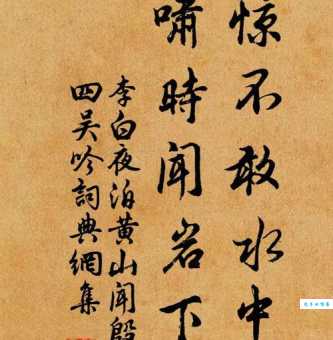 惊不敢水中
嘯時闻岩下
李白夜泊黄山闻殷
四吴吟詞典網集